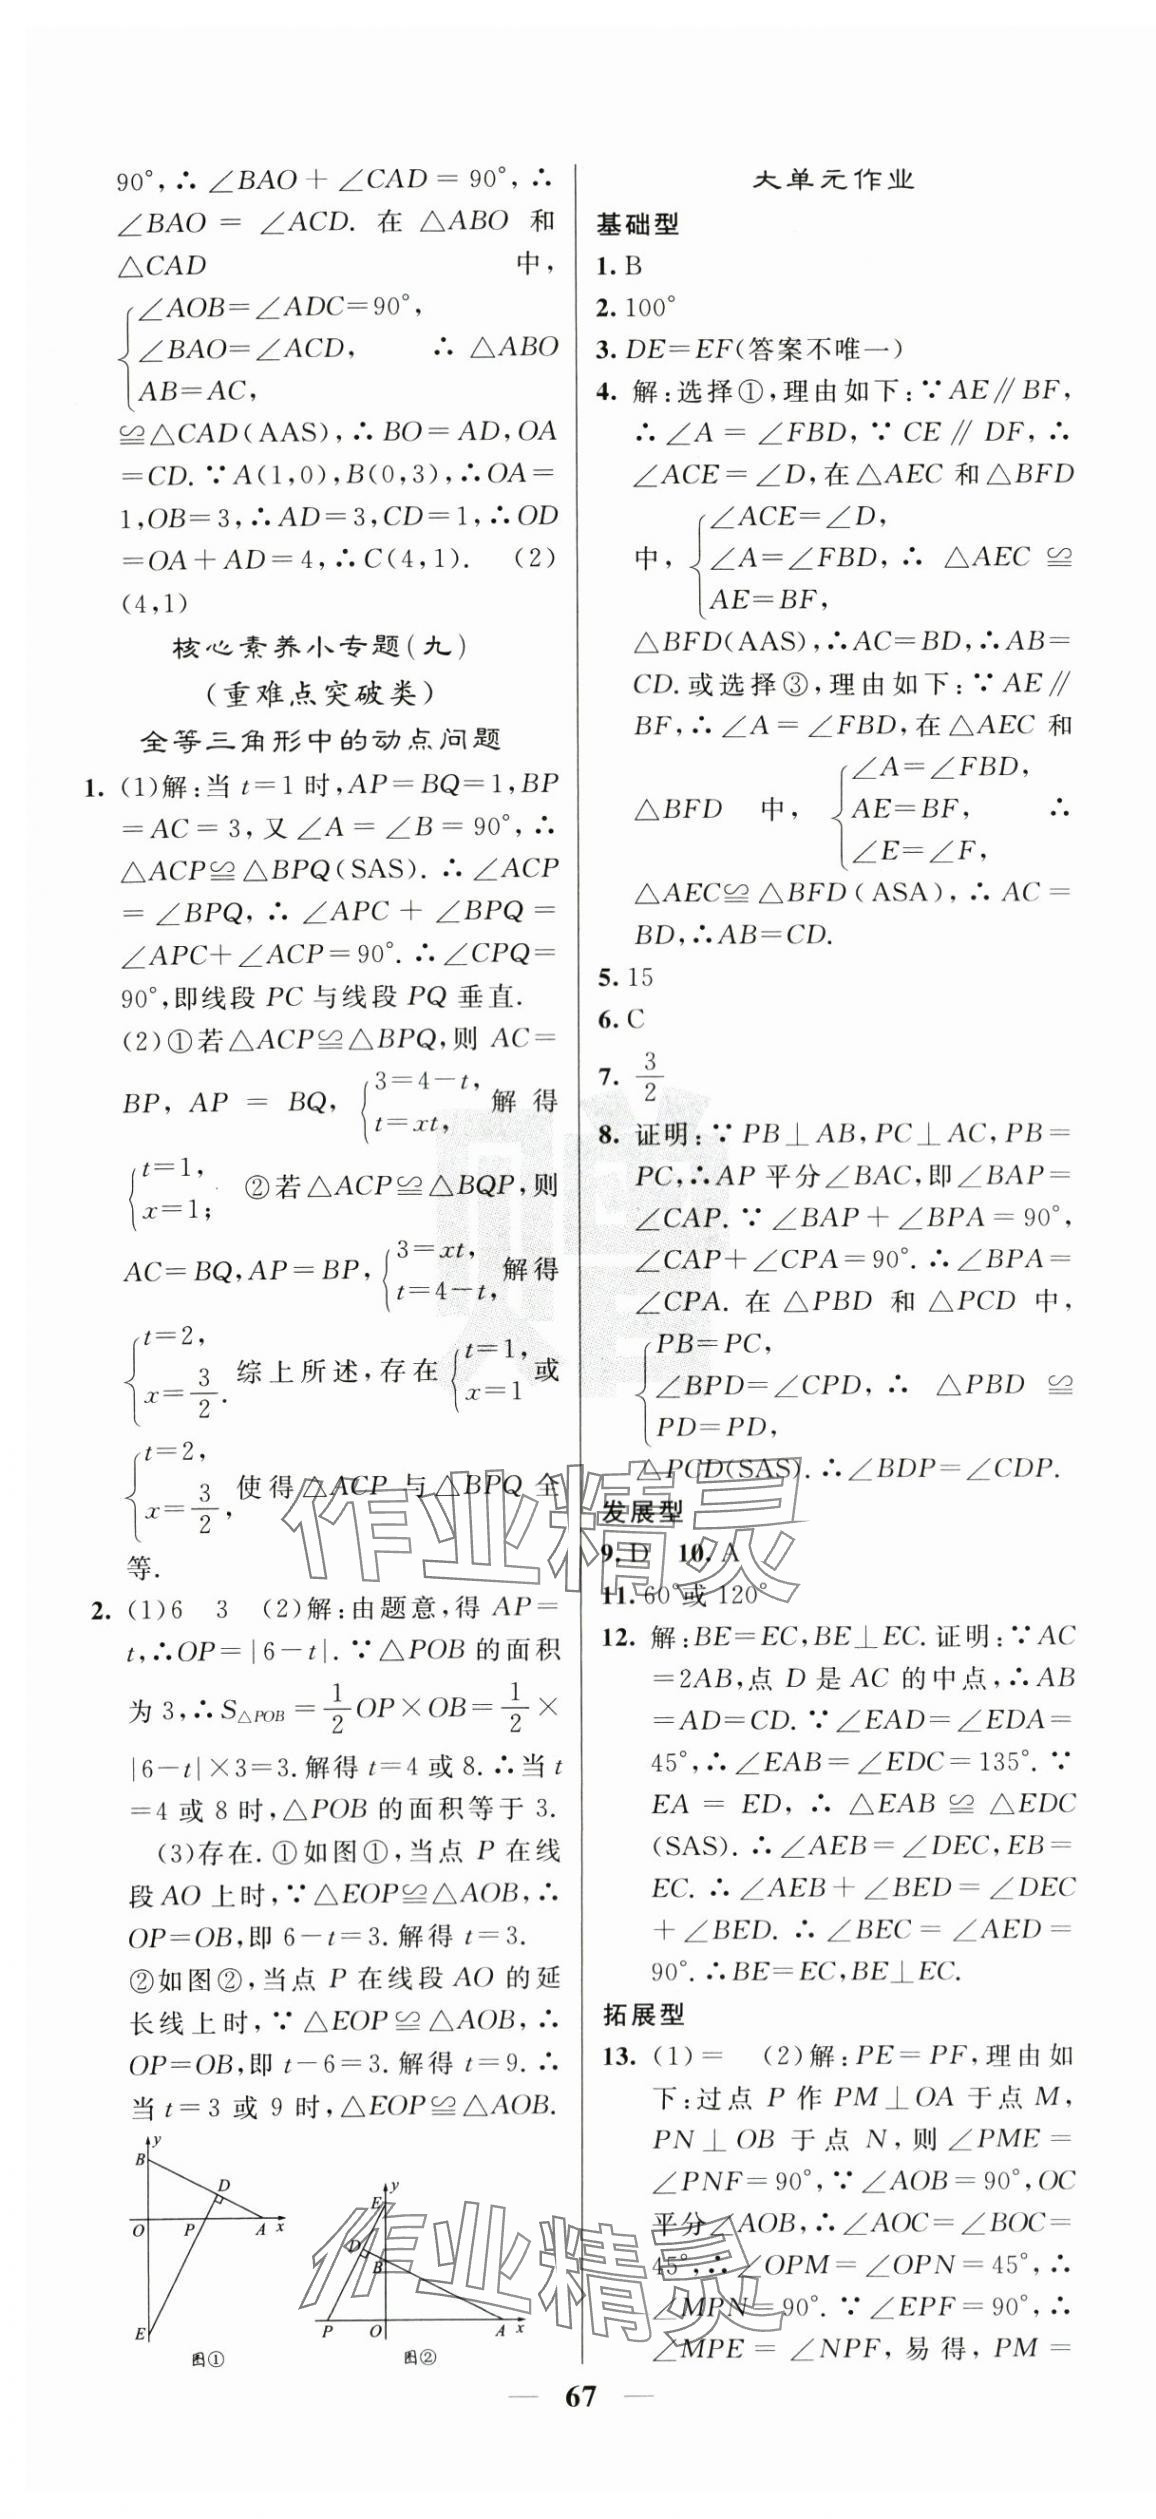 90°,∴∠BAO+∠CAD=90°,∴
∠BAO=∠ACD. 在△ABO和
△CAD 中,
∠AOB=∠ADC=90°,
∠BAO=∠ACD, ∴△ABO
AB=AC,
≌△CAD(AAS),∴BO=AD,OA
=CD.∵A(1,0),B(0,3),∴OA=
1,OB=3,∴AD=3,CD=1,∴OD
=OA+AD=4,∴C(4,1). (2)
(4,1)
核心素养小专题(九)
(重难点突破类)
全等三角形中的动点问题
1. (1)解:当t=1时,AP=BQ=1,BP
=AC=3,又∠A=∠B=90°,∴
△ACP≌△BPQ(SAS).∴∠ACP
=∠BPQ,∴∠APC+∠BPQ=
∠APC+∠ACP=90°.∴∠CPQ=
90°,即线段PC与线段PQ垂直.
(2)①若△ACP≌△BPQ,则AC=
BP,AP=BQ, {3=4-t, t=xt, 解得
{t=1, x=1; ②若△ACP≌△BQP,则
AC=BQ,AP=BP, {3=xt, t=4-t, 解得
{t=2, x=3/2. 综上所述,存在 {t=1, x=1 或
{t=2, x=3/2, 使得△ACP与△BPQ全
等.
2. (1)6 3 (2)解:由题意,得AP=
t,∴OP=|6-t|.∵△POB的面积
为3,∴S△POB=1/2OP×OB=1/2×
|6-t|×3=3.解得t=4或8.∴当t
=4或8时,△POB的面积等于3.
(3)存在.①如图①,当点P在线
段AO上时,∵△EOP≌△AOB,∴
OP=OB,即6-t=3.解得t=3.
②如图②,当点P在线段AO的延
长线上时,∵△EOP≌△AOB,∴
OP=OB,即t-6=3.解得t=9.∴
当t=3或9时,△EOP≌△AOB.
y
B
D
O P A x
E
图①
y
E
D
B
P O A x
图②
大单元作业
基础型
1. B
2. 100°
3. DE=EF(答案不唯一)
4. 解:选择①,理由如下:∵AE∥BF,
∴∠A=∠FBD,∵CE∥DF,∴
∠ACE=∠D,在△AEC和△BFD
∠ACE=∠D,
中, ∠A=∠FBD,∴△AEC≌
AE=BF,
△BFD(AAS),∴AC=BD,∴AB=
CD.或选择③,理由如下:∵AE∥
BF,∴∠A=∠FBD,在△AEC和
∠A=∠FBD,
△BFD 中, AE=BF, ∴
∠E=∠F,
△AEC≌△BFD(ASA),∴AC=
BD,∴AB=CD.
5. 15
6. C
7. 3/2
8. 证明:∵PB⊥AB,PC⊥AC,PB=
PC,∴AP平分∠BAC,即∠BAP=
∠CAP.∵∠BAP+∠BPA=90°,
∠CAP+∠CPA=90°.∴∠BPA=
∠CPA.在△PBD和△PCD中,
PB=PC,
∠BPD=∠CPD,∴△PBD≌
PD=PD,
△PCD(SAS).∴∠BDP=∠CDP.
发展型
9. D 10. A
11. 60°或120°
12. 解:BE=EC,BE⊥EC.证明:∵AC
=2AB,点D是AC的中点,∴AB
=AD=CD.∵∠EAD=∠EDA=
45°,∴∠EAB=∠EDC=135°.∵
EA=ED,∴△EAB≌△EDC
(SAS).∴∠AEB=∠DEC,EB=
EC.∴∠AEB+∠BED=∠DEC
+∠BED.∴∠BEC=∠AED=
90°.∴BE=EC,BE⊥EC.
拓展型
13. (1)= (2)解:PE=PF,理由如
下:过点P作PM⊥OA于点M,
PN⊥OB于点N,则∠PME=
∠PNF=90°,∵∠AOB=90°,OC
平分∠AOB,∴∠AOC=∠BOC=
45°,∴∠OPM=∠OPN=45°,∴
∠MPN=90°.∵∠EPF=90°,∴
∠MPE=∠NPF,易得,PM=
作业精灵
作业精灵
— 67 —